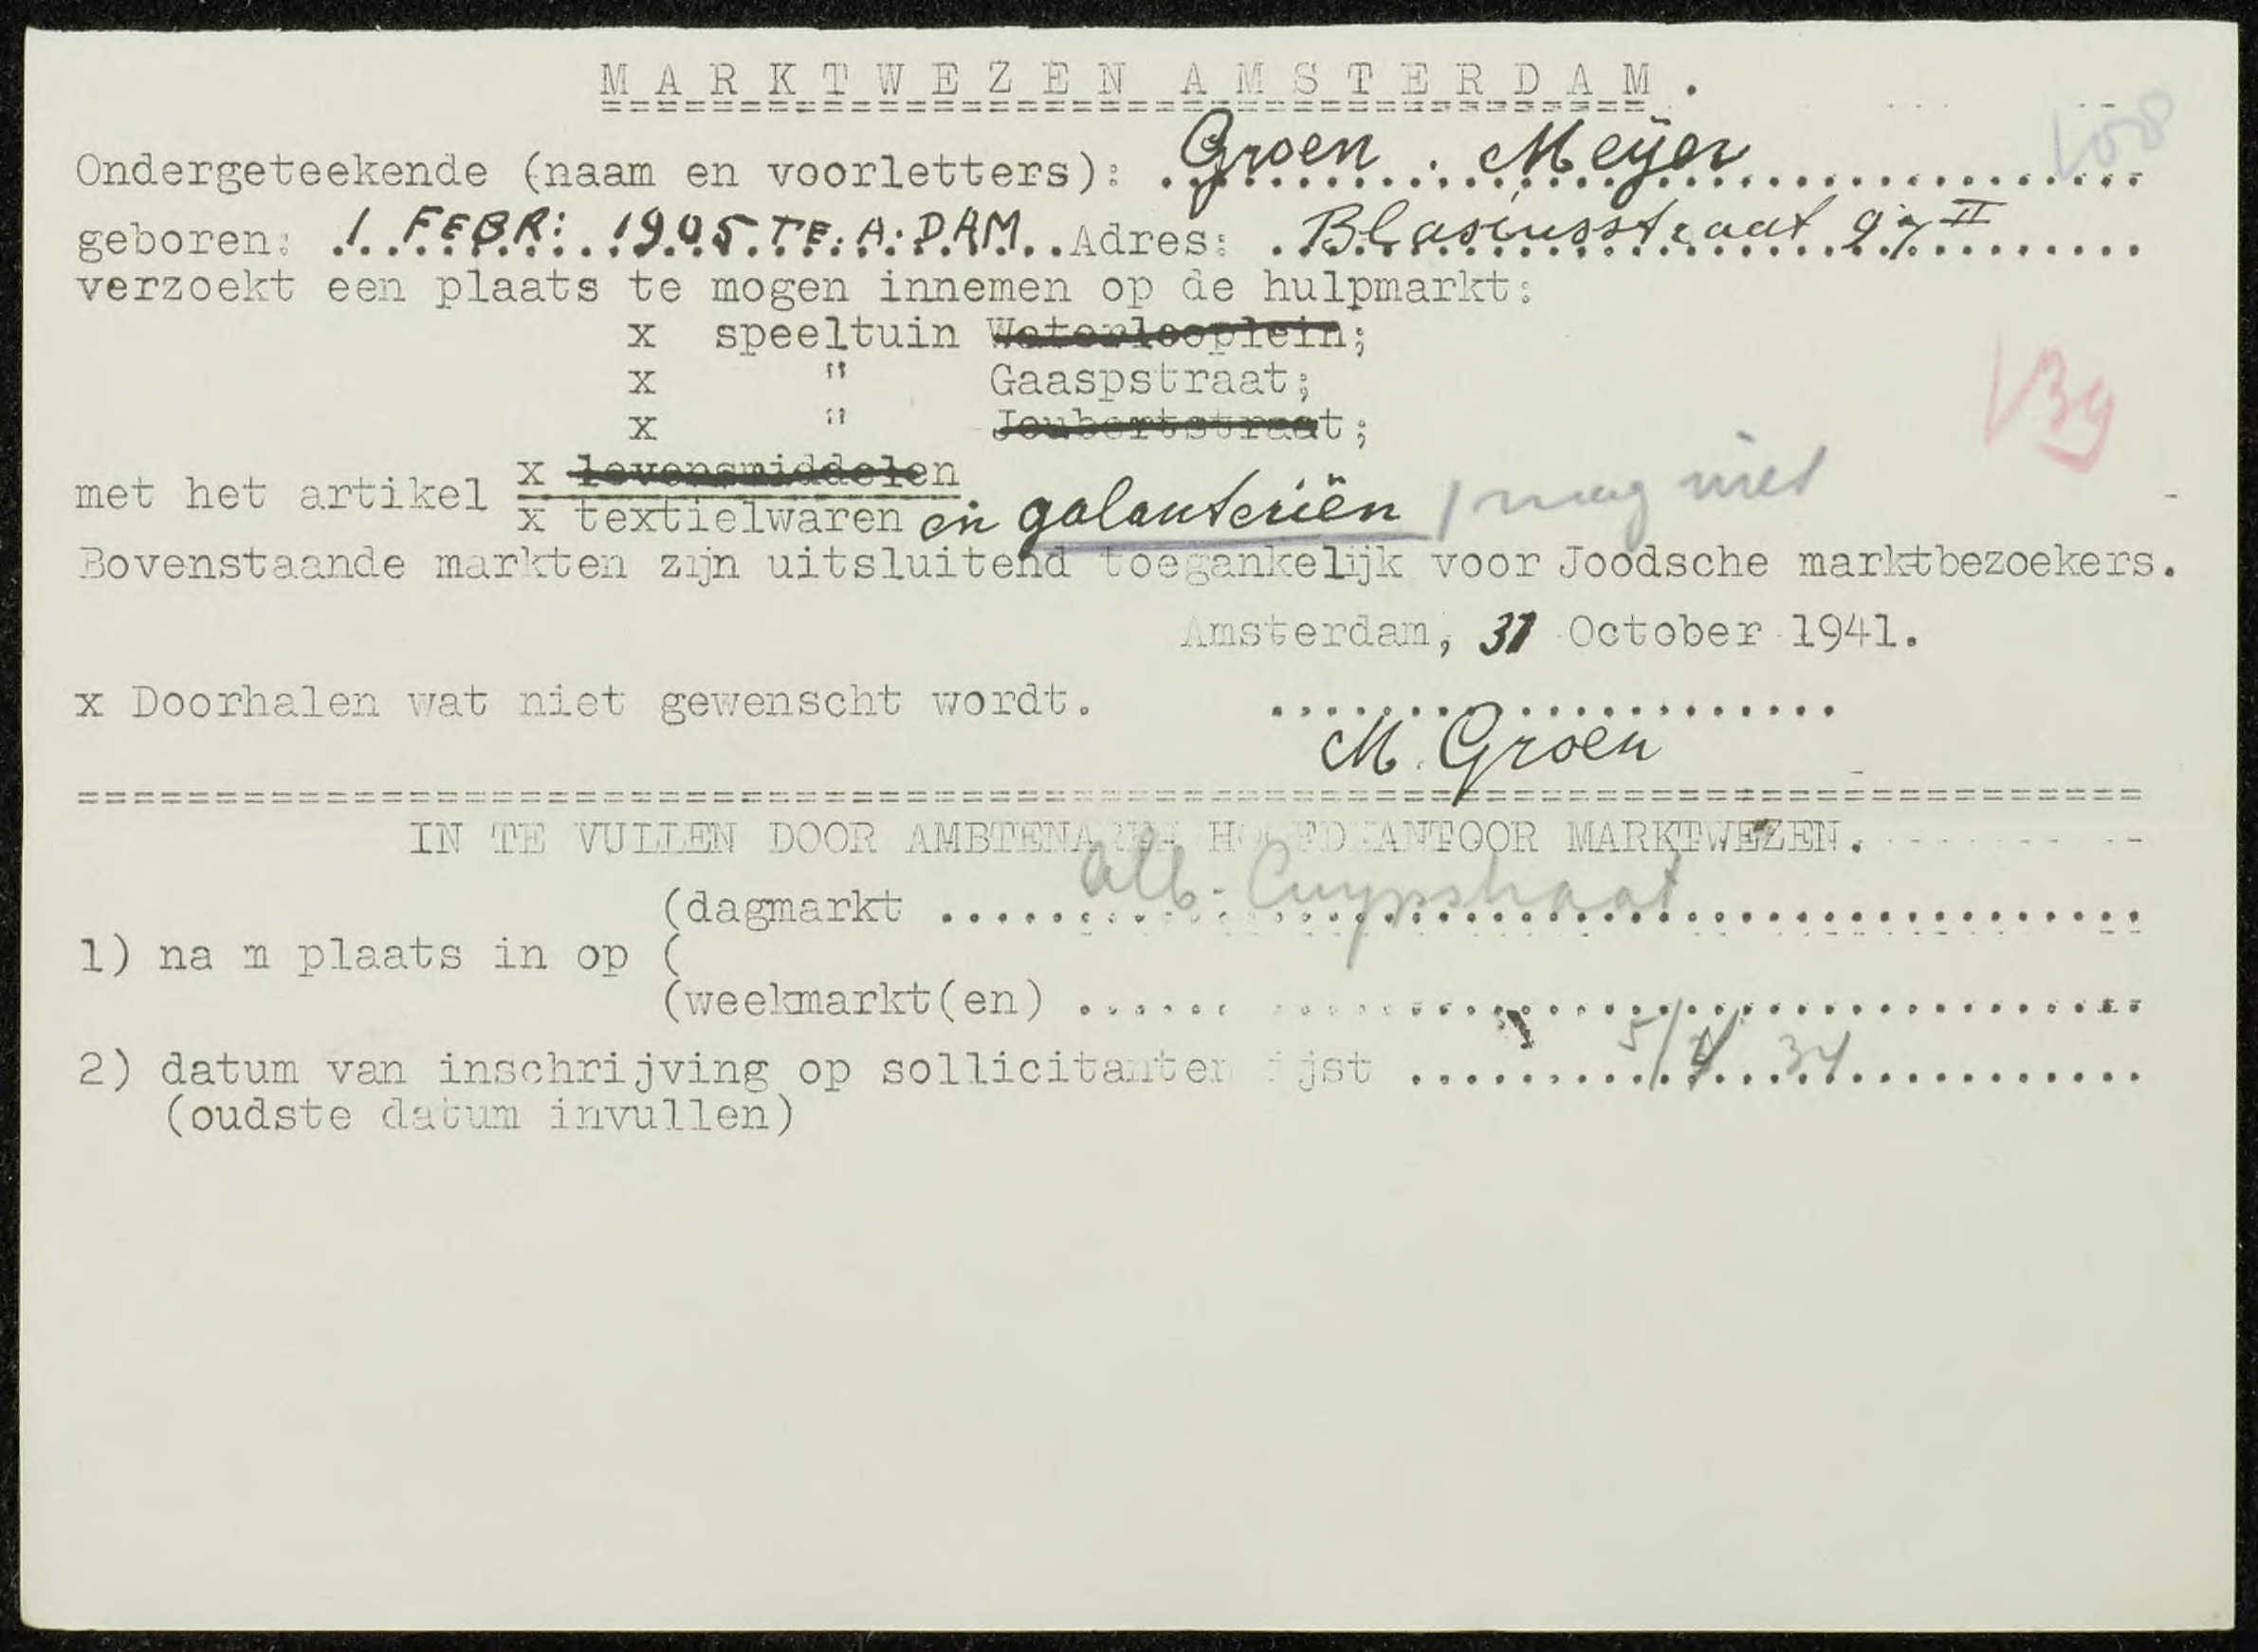 MARKTWEZEN AMSTERDAM.
108
Ondergeteekende (naam en voorletters): Groen. Meijer
geboren: 1 FEBR: 1905 TE. A.DAM. Adres: Blasiusstraat 97 II
verzoekt een plaats te mogen innemen op de hulpmarkt:
x speeltuin Waterlooplein;
x " Gaaspstraat;
x " Joubertstraat;
x levensmiddelen
met het artikel
x textielwaren en galanteriën / mag niet
Bovenstaande markten zijn uitsluitend toegankelijk voor Joodsche marktbezoekers.
Amsterdam, 31 October 1941.
x Doorhalen wat niet gewenscht wordt.
M. Groen
IN TE VULLEN DOOR AMBTENAREN HOOFDKANTOOR MARKTWEZEN.
(dagmarkt Alb. Cuypstraat
1) na m plaats in op (
(weekmarkt(en)
2) datum van inschrijving op sollicitantenlijst 5/4 34
(oudste datum invullen)